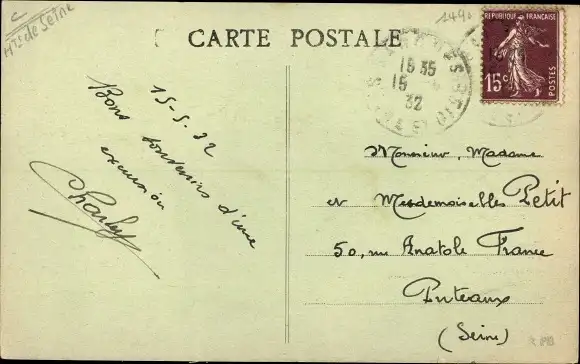 C
Hts de Seine
1490
CARTE POSTALE
RÉPUBLIQUE FRANÇAISE
15c
POSTES
15 35
15 -5
32
15-5-32
Bons souvenirs d'une
excursion
Charley
Monsieur, Madame
et Mesdemoiselles Petit
50, rue Anatole France
Puteaux
(Seine)